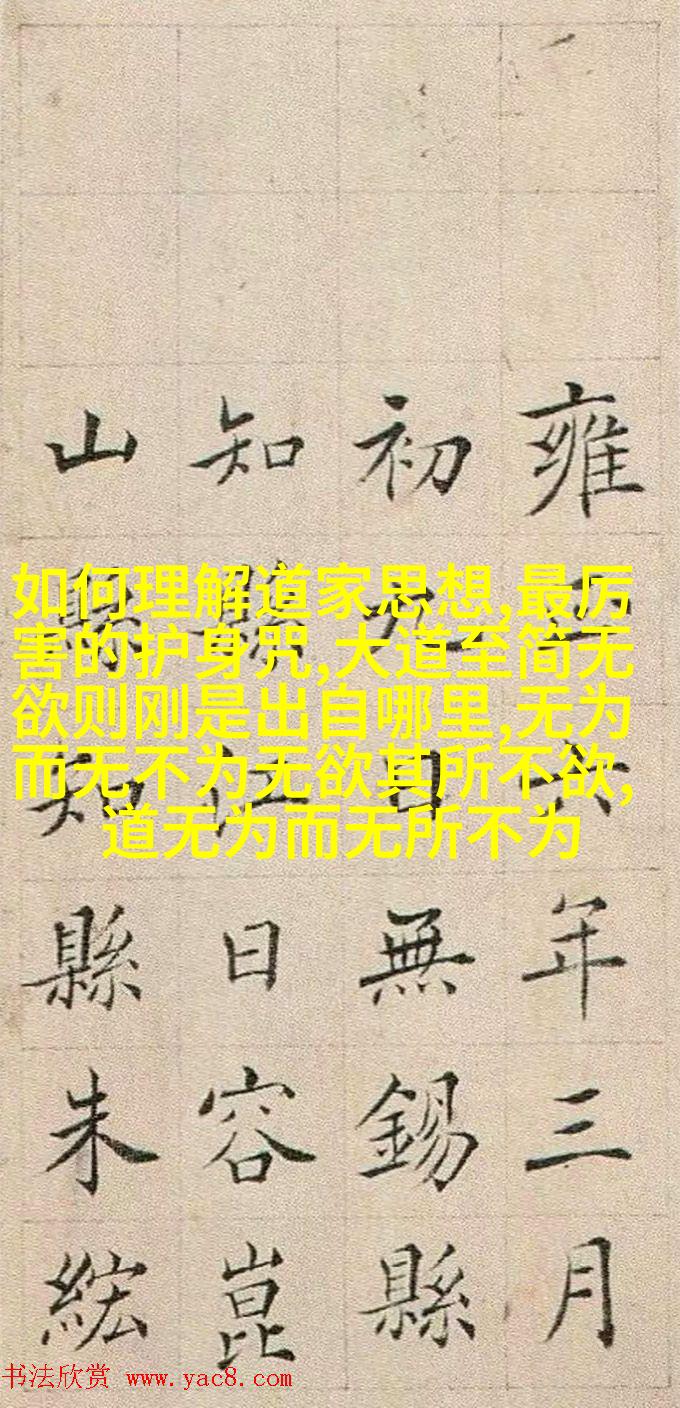 雍正六年三月
初九日無錫縣
知縣江日容崑
山縣知縣朱紘
如何理解道家思想,最厉
害的护身咒,大道至简无
欲则刚是出自哪里,无为
而无不为无欲其所不欲,
道无为而无所不为
书法欣赏 www.yac8.com